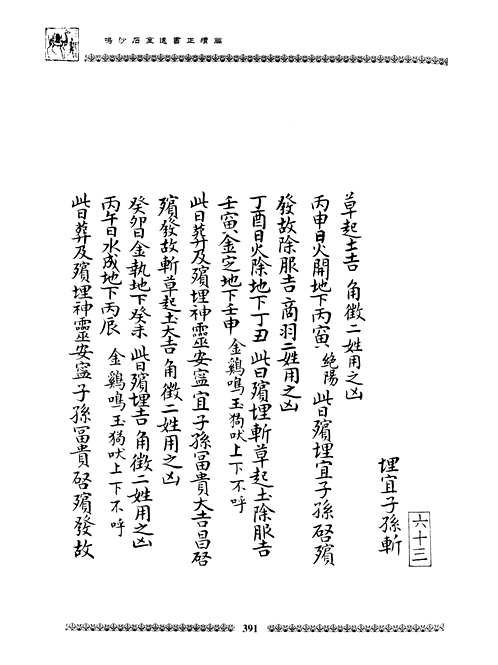 鳴沙石室遺書正續編
六十三
埋宜子孫斬
草起土吉 角徵二姓用之凶
丙申日火開地下丙寅 絶陽 此日殯埋宜子孫啓殯
發故除服吉 商羽二姓用之凶
丁酉日火除地下丁丑 此日殯埋斬草起土除服吉
壬寅金定地下壬申 金鷄鳴玉狗吠上下不呼
此日葬及殯埋神靈安寧宜子孫冨貴大吉昌啓
殯發故斬草起土大吉 角徵二姓用之凶
癸卯日金執地下癸未 此日殯埋吉角徵二姓用之凶
丙午日水成地下丙辰 金鷄鳴玉狗吠上下不呼
此日葬及殯埋神靈安寧子孫冨貴啓殯發故
391